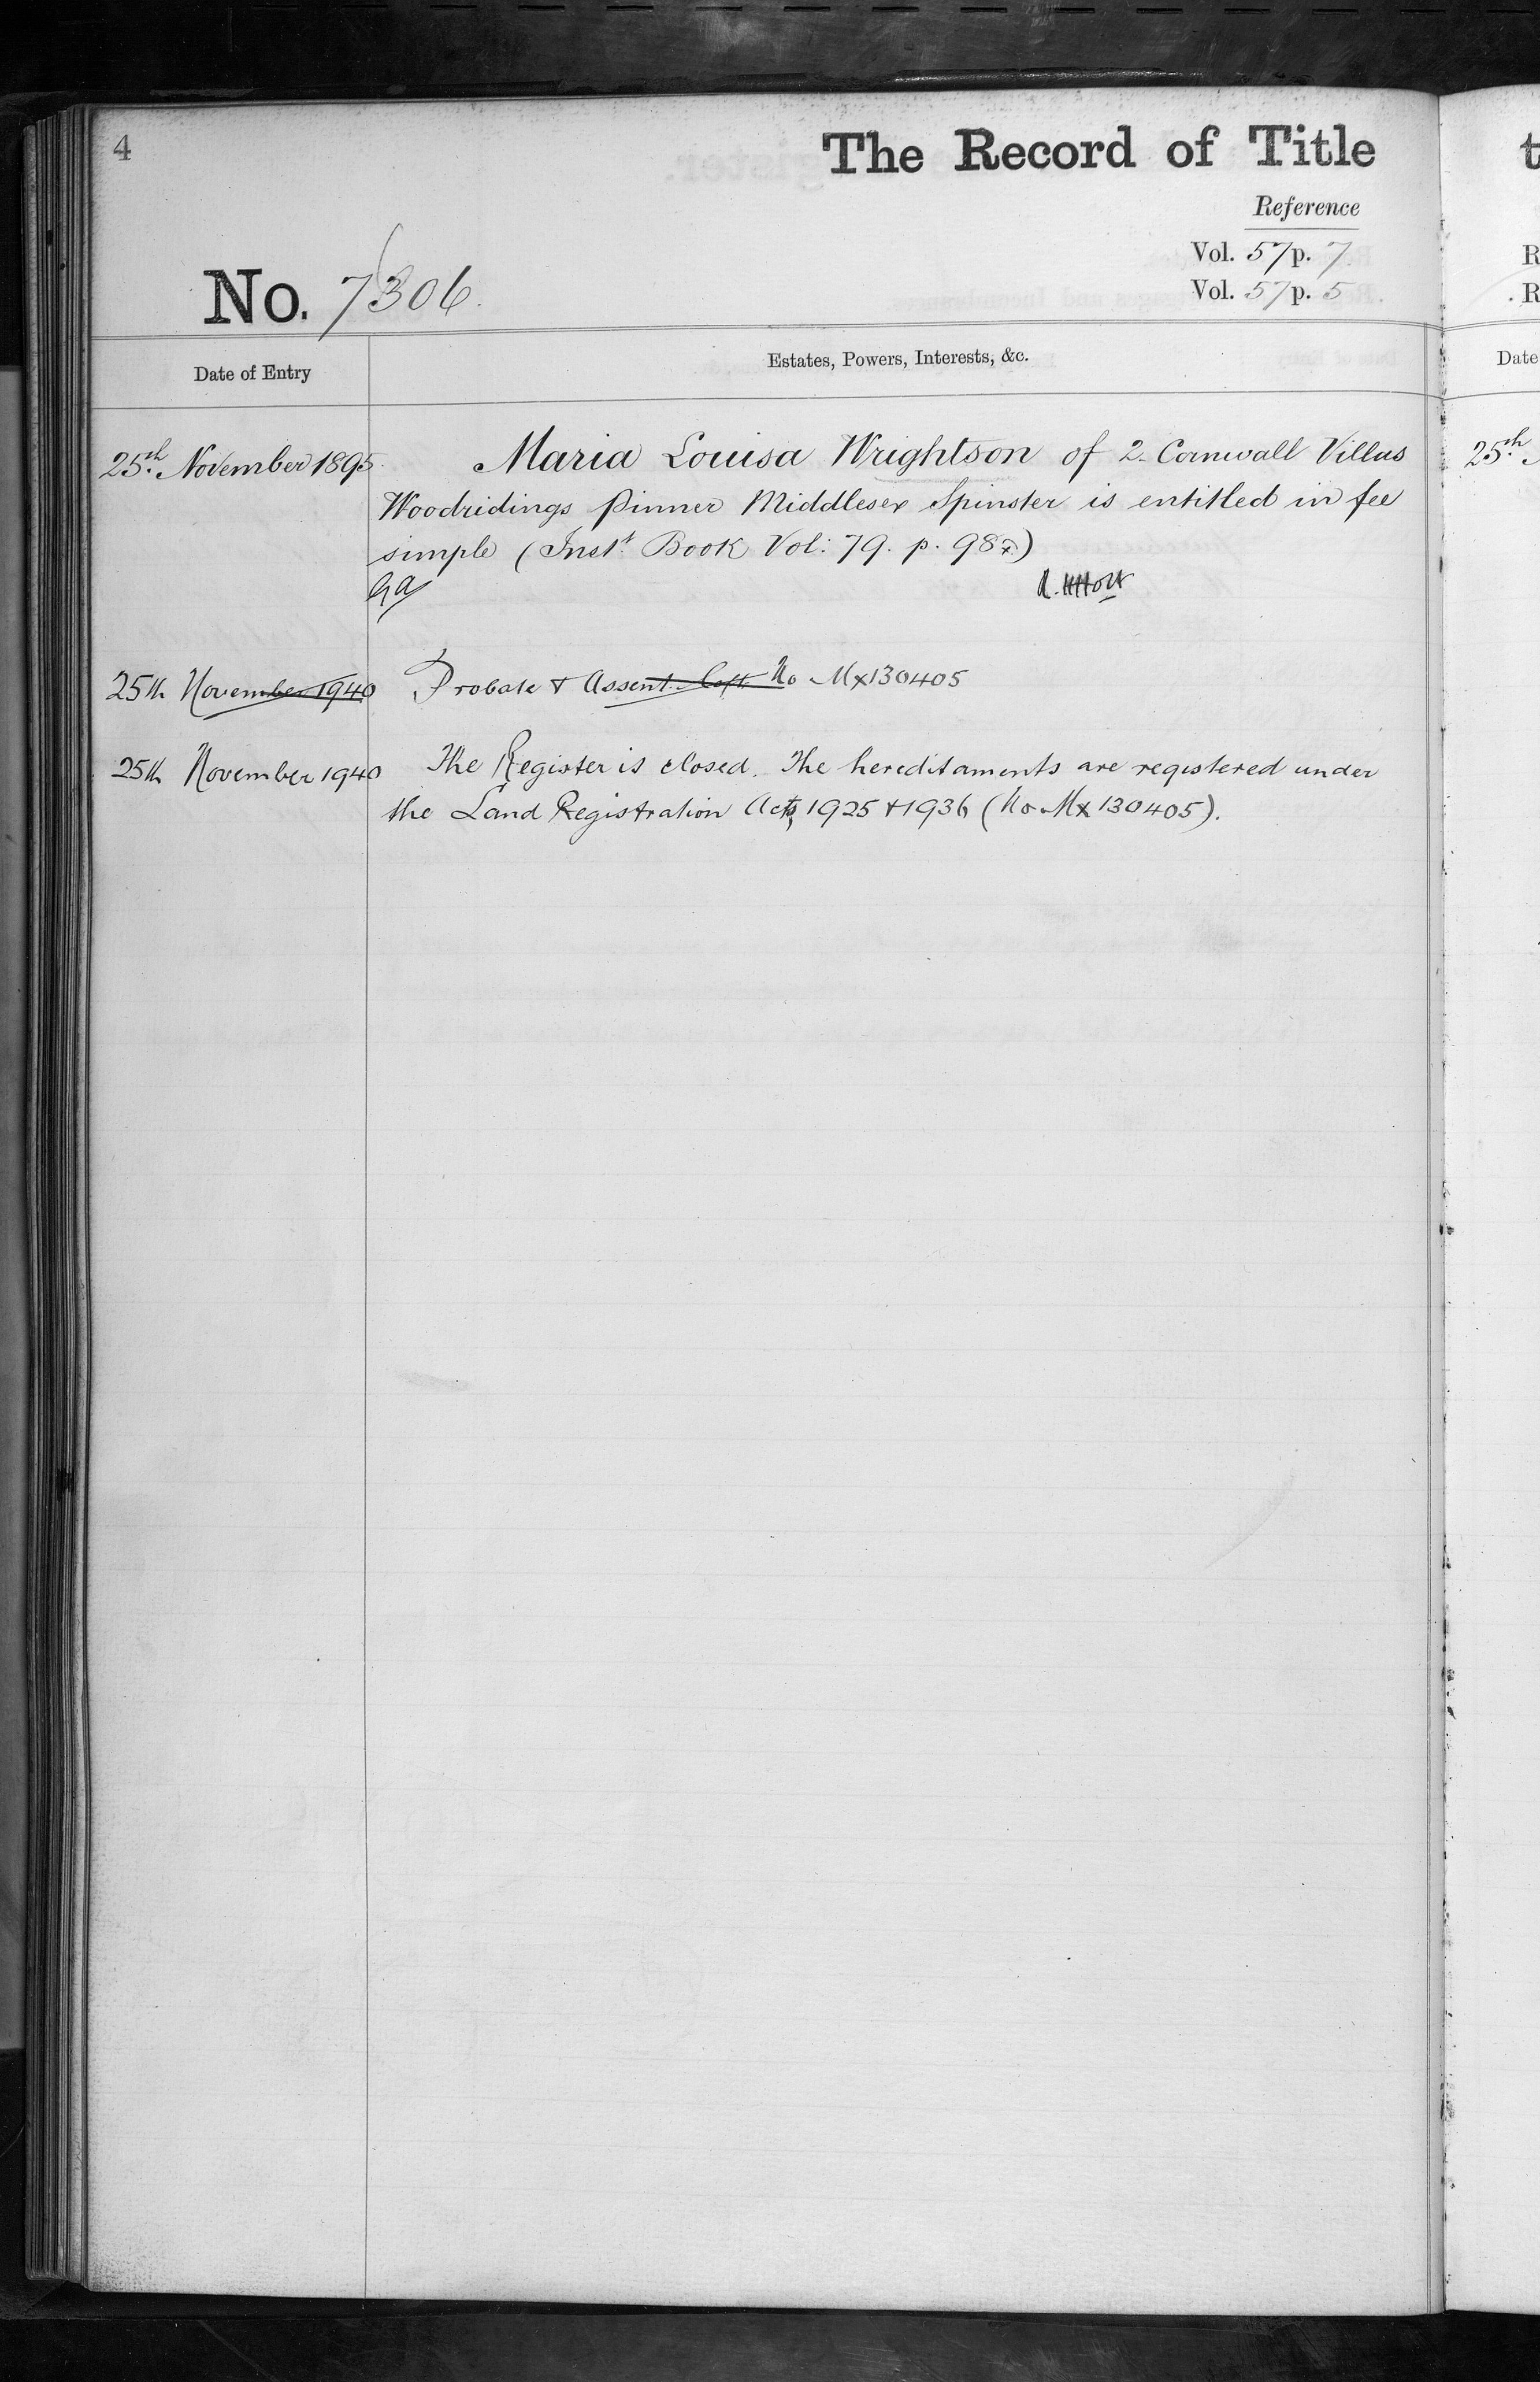 4
The Record of Title
Reference
Vol. 57 p. 7.
Vol. 57 p. 5
No. 7306.
Date of Entry
Estates, Powers, Interests, &c.
25th. November 1895.
Maria Louisa Wrightson of 2 Cornwall Villas
Woodridings Pinner Middlesex Spinster is entitled in fee
simple (Inst. Book Vol: 79. p. 987)
25th November 1940
Probate & Assent No Mx130405
25th November 1940
The Register is closed. The hereditaments are registered under
the Land Registration Acts, 1925 & 1936 (No Mx 130405).
t
R
R
Date
25th.